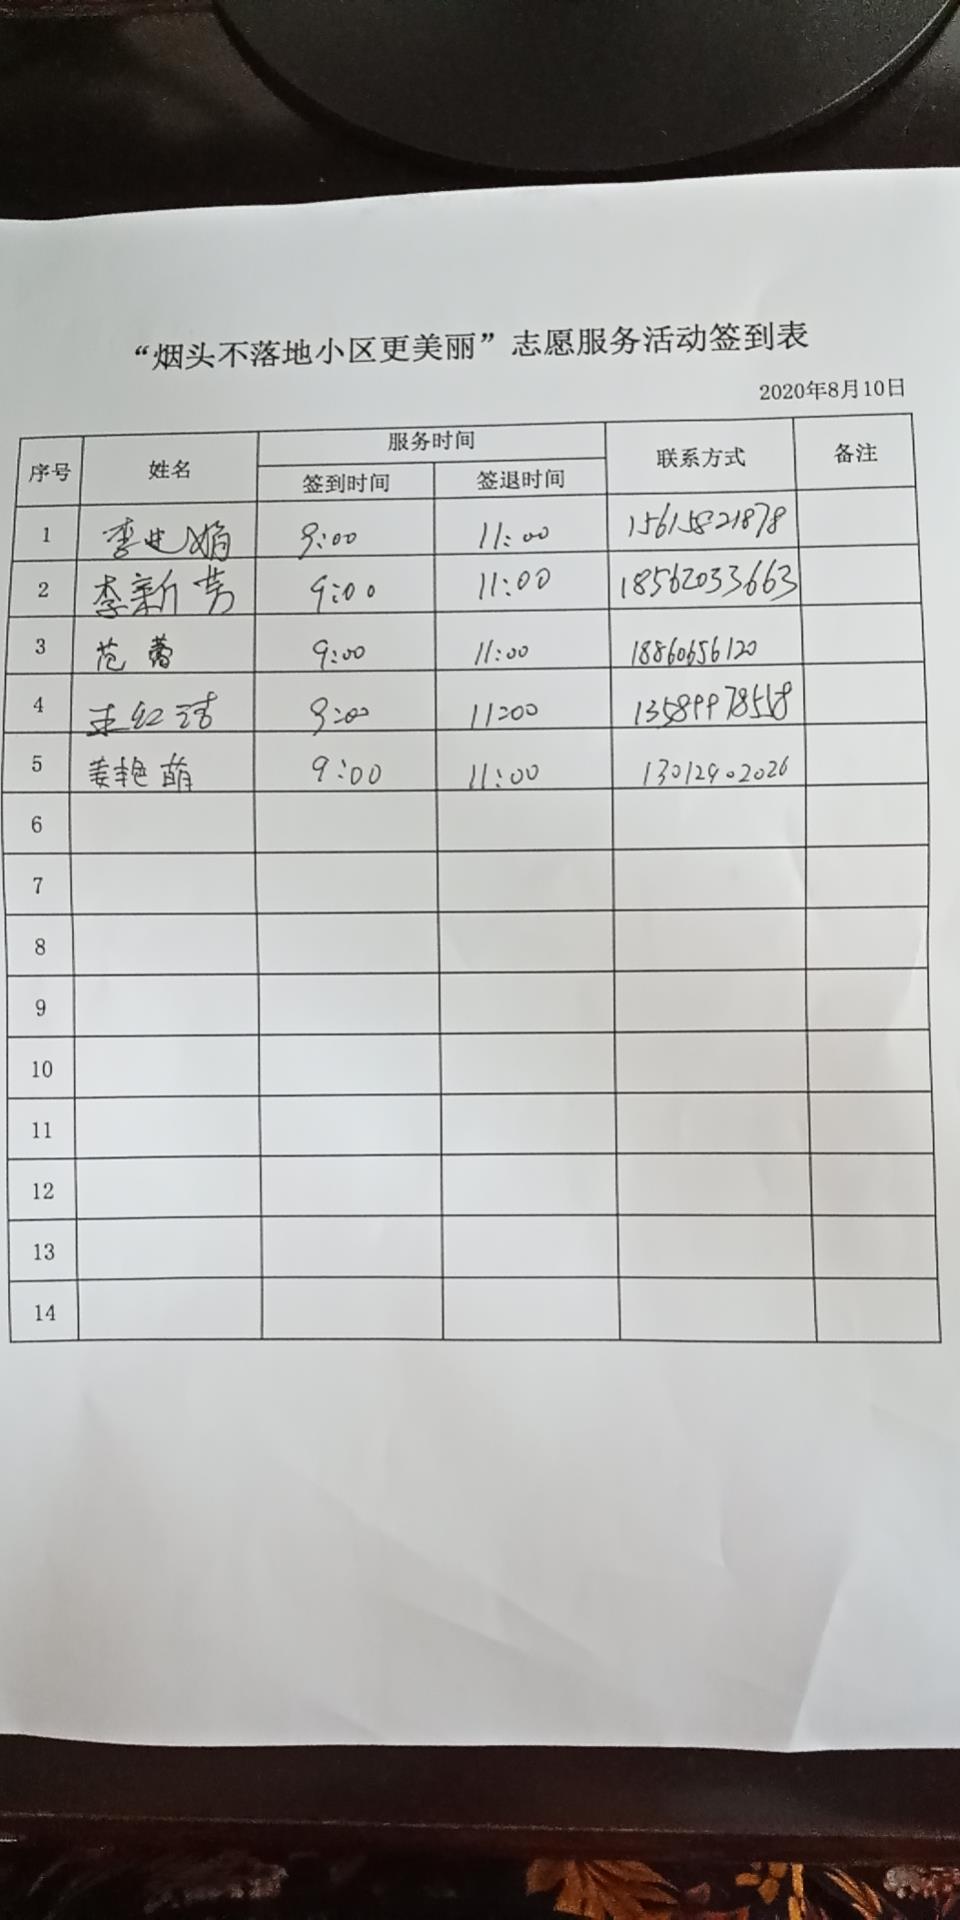 “烟头不落地小区更美丽”志愿服务活动签到表
2020年8月10日
序号 姓名 服务时间 联系方式 备注
签到时间 签退时间
1 李 娟 9:00 11:00 15615821878
2 李新芳 9:00 11:00 18562033663
3 范蕾 9:00 11:00 18860656120
4 王红洁 9:00 11:00 13589978558
5 姜艳萌 9:00 11:00 13012902026
6
7
8
9
10
11
12
13
14